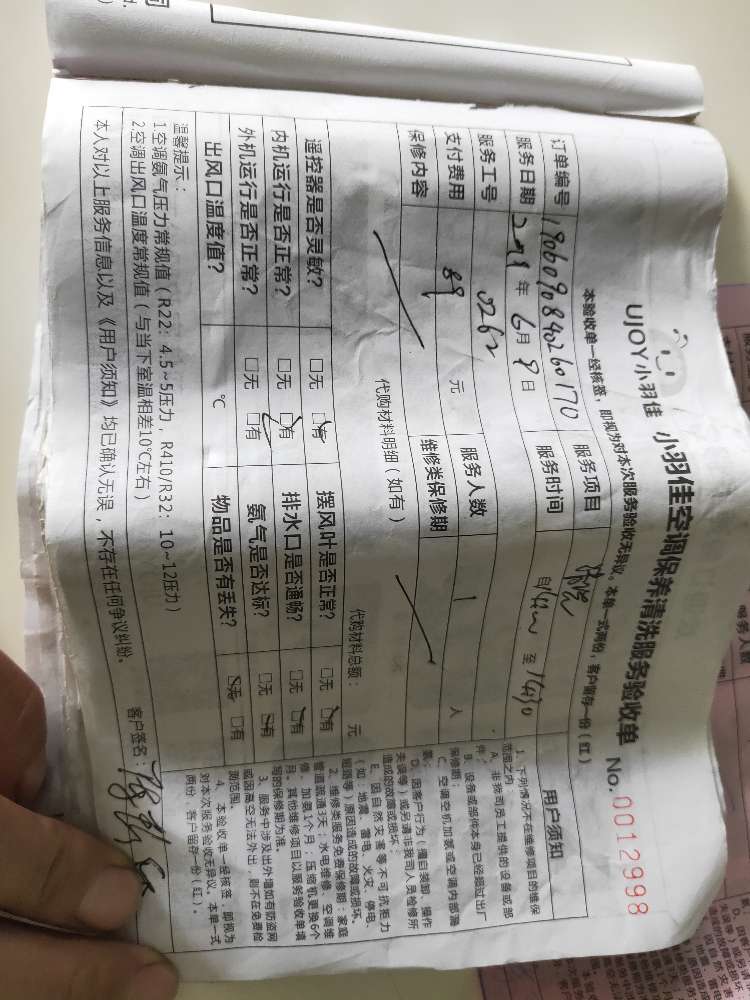 UJOY小羽佳 小羽佳空调保养清洗服务验收单 No.0012998
本验收单一经核签，即视为对本次服务验收无异议。本单一式两份，客户留存一份（红）
订单编号 1906090840260170 服务项目 清洗
服务日期 2019年6月9日 服务时间 自 至
服务工号 0262 服务人数 1 人
支付费用 89 元 维修类保修期
保修内容
代购材料明细（如有） 代购材料总额： 元
遥控器是否灵敏？ □无 □有 摆风叶是否正常？ □无 □有
内机运行是否正常？ □无 □有 排水口是否通畅？ □无 □有
外机运行是否正常？ □无 □有 氨气是否达标？ □无 □有
出风口温度值？ ℃ 物品是否有丢失？ □无 □有
温馨提示：
1空调氨气压力常规值（R22：4.5~5压力，R410/R32：10~12压力）
2空调出风口温度常规值（与当下室温相差10℃左右）
本人对以上服务信息以及《用户须知》均已确认无误，不存在任何争议纠纷。
客户签名：
用户须知
1、下列情况不在维修项目的维保
范围之内
A、非我司员工提供的设备或部
件；
B、设备或部件本身已经超过出厂
保修期；
C、空调空机加装或空调内部漏
氨；
D、因客户行为（擅自装卸、操作
失误等）或另请非我司人员检修所
造成的故障或损坏；
E、因自然灾害等不可抗拒力
（如：地震、雷电、火灾、停电、
短路等）原因造成的故障或损坏。
2、维修类服务免费保修期：家庭
管道疏通3天，水电维修、空调维
修、加氨1个月，压缩机更换6个
月。其他维修项目以服务验收单填
写的保修期为准。
3、服务中涉及出外墙如有防盗网
或因高空无法外出，则不在免费检
测范围。
4、本验收单一经核签，即视为
对本次服务验收无异议。本单一式
两份，客户留存一份（红）。